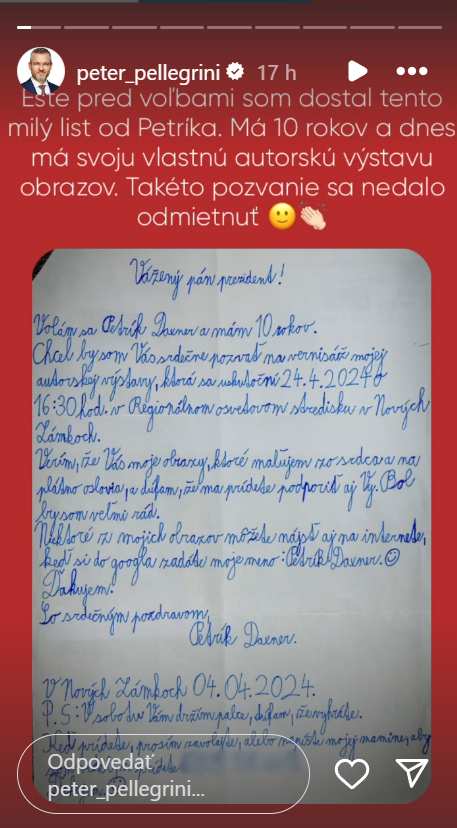 peter_pellegrini 17 h
Ešte pred voľbami som dostal tento
milý list od Petríka. Má 10 rokov a dnes
má svoju vlastnú autorskú výstavu
obrazov. Takéto pozvanie sa nedalo
odmietnuť 🙂👏🏻
Vážený pán prezident!
Volám sa Petrík Daxner a mám 10 rokov.
Chcel by som Vás srdečne pozvať na vernisáž mojej
autorskej výstavy, ktorá sa uskutoční 24.4.2024 o
16:30 hod. v Regionálnom osvetovom stredisku v Nových
Zámkoch.
Verím, že Vás moje obrazy, ktoré maľujem zo srdca a na
plátno oslovia, a dúfam, že ma prídete podporiť aj Vy. Bol
by som veľmi rád.
Niektoré z mojich obrazov môžete nájsť aj na internete,
keď si do googla zadáte moje meno: Petrík Daxner.☺
Ďakujem.
So srdečným pozdravom,
Petrík Daxner.
V Nových Zámkoch 04.04.2024.
P.S: V sobotu Vám držím palce, dúfam, že vyhráte.
Keď prídete, prosím zavolajte, alebo mojej mamine, aby
Odpovedať
peter_pellegrini...